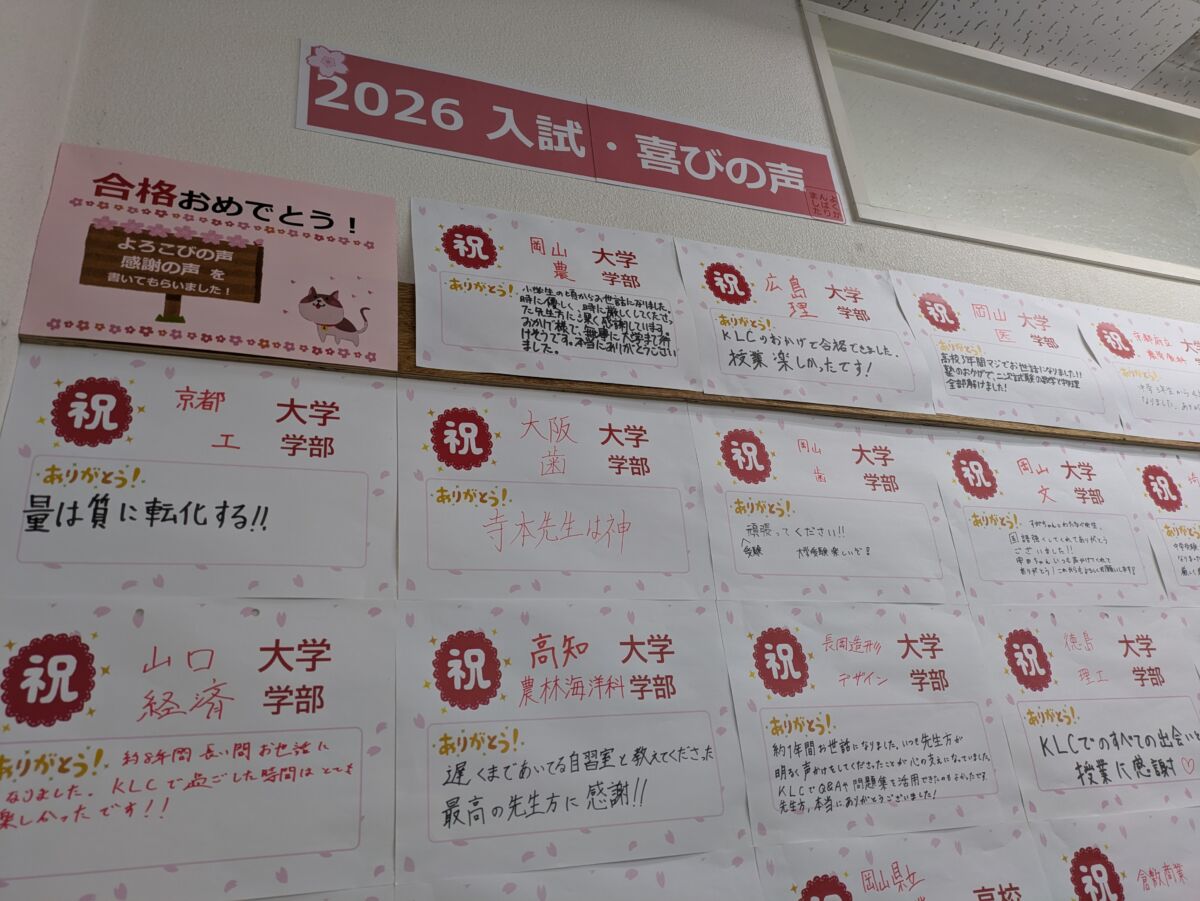 2026 入試・喜びの声
よくが
んばり
ました
合格おめでとう！
よろこびの声
感謝の声 を
書いてもらいました！
祝 岡山 大学
農 学部
ありがとう！ 小学生の頃からお世話になりました。
時に優しく、時に厳しくしてくださっ
た先生方に深く感謝しています。
おかげ様で、無事に大学まで行
けそうです。本当にありがとうござい
ました。
祝 広島 大学
理 学部
ありがとう！
KLCのおかげで合格できました。
授業楽しかったです！
祝 岡山 大学
医 学部
ありがとう！
高校3年間マジでお世話になりました!!
塾のおかげで二次試験の数学と物理
全部解けました！
祝 京都府立 大学
ありがとう！
祝 京都 大学
工 学部
ありがとう！
量は質に転化する!!
祝 大阪 大学
歯 学部
ありがとう！
寺本先生は神
祝 岡山 大学
歯 学部
ありがとう！
頑張ってください!!
受験 大学受験楽しいぞ！
祝 岡山 大学
文 学部
ありがとう！
勉強くしてくれてありがとう
ございました!!
いつも声かけてくれて
ありがとう！これからもよろしくお願いします！
祝
ありがとう！
祝 山口 大学
経済 学部
ありがとう！ 約8年間 長い間お世話に
なりました。KLCで過ごした時間はとても
楽しかったです！！
祝 高知 大学
農林海洋科 学部
ありがとう！
遅くまであいてる自習室と教えてくださった
最高の先生方に感謝!!
祝 長岡造形 大学
デザイン 学部
ありがとう！
約1年間お世話になりました。いつも先生方が
明るく声かけをしてくださったことが心の支えになっていました。
KLCでQ&Aや問題集を活用できたのもよかったです。
先生方、本当にありがとうございました！
祝 徳島 大学
理工 学部
ありがとう！
KLCでのすべての出会いと
授業に感謝♡
祝 岡山県立
高校
祝 倉敷商業